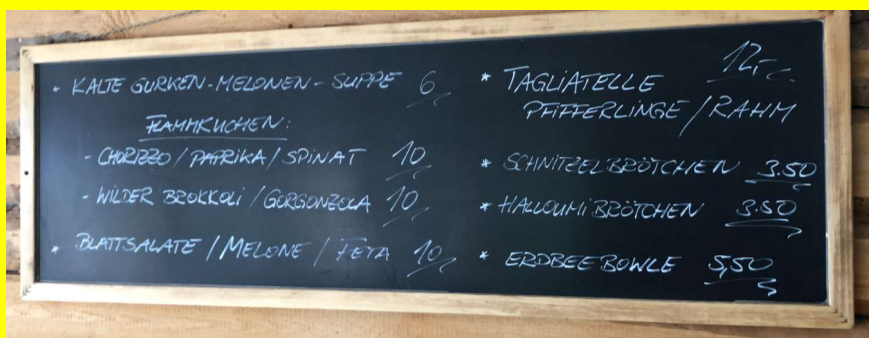 * KALTE GURKEN-MELONEN-SUPPE 6
FLAMMKUCHEN:
- CHORIZZO / PAPRIKA / SPINAT 10
- WILDER BROKKOLI / GORGONZOLA 10
* BLATTSALATE / MELONE / FETA 10
* TAGLIATELLE 12,-
PFIFFERLINGE / RAHM
* SCHNITZELBRÖTCHEN 3.50
* HALLOUMIBRÖTCHEN 3.50
* ERDBEEBOWLE 5,50